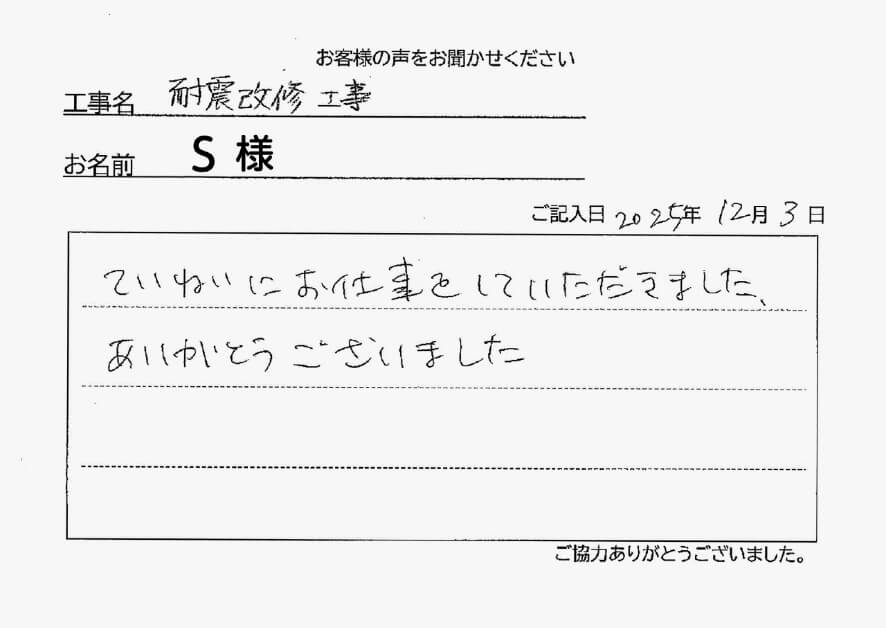 お客様の声をお聞かせください
工事名 耐震改修工事
お名前 S 様
ご記入日 2025年 12月 3日
ていねいにお仕事をしていただきました、
ありがとうございました
ご協力ありがとうございました。